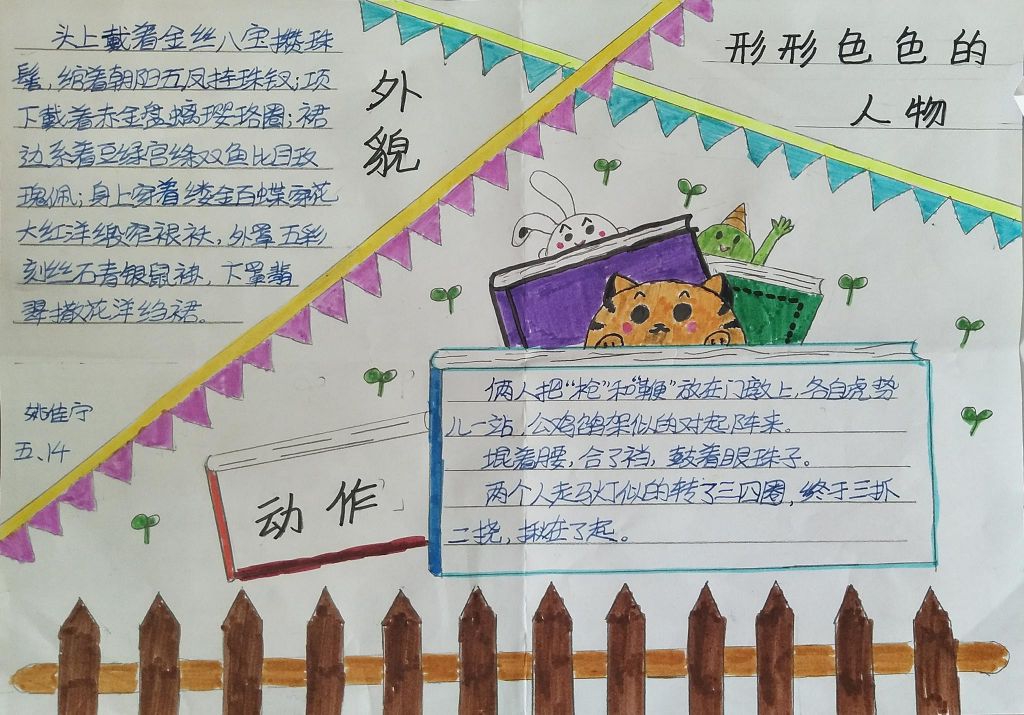 形形色色的
人物
外
貌
头上戴着金丝八宝攒珠
髻，绾着朝阳五凤挂珠钗；项
下戴着赤金盘螭璎珞圈；裙
边系着豆绿宫绦双鱼比目玫
瑰佩；身上穿着缕金百蝶穿花
大红洋缎窄裉袄，外罩五彩
刻丝石青银鼠褂，下罩翡
翠撒花洋绉裙。
姚佳宁
五、14
动作
俩人把“枪”和“鞭”放在门墩上，各自虎势
儿一站，公鸡鹐架似的对起阵来。
堒着腰，合了裆，鼓着眼珠子。
两个人走马灯似的转了三四圈，终于三抓
二挠，揪在了起。